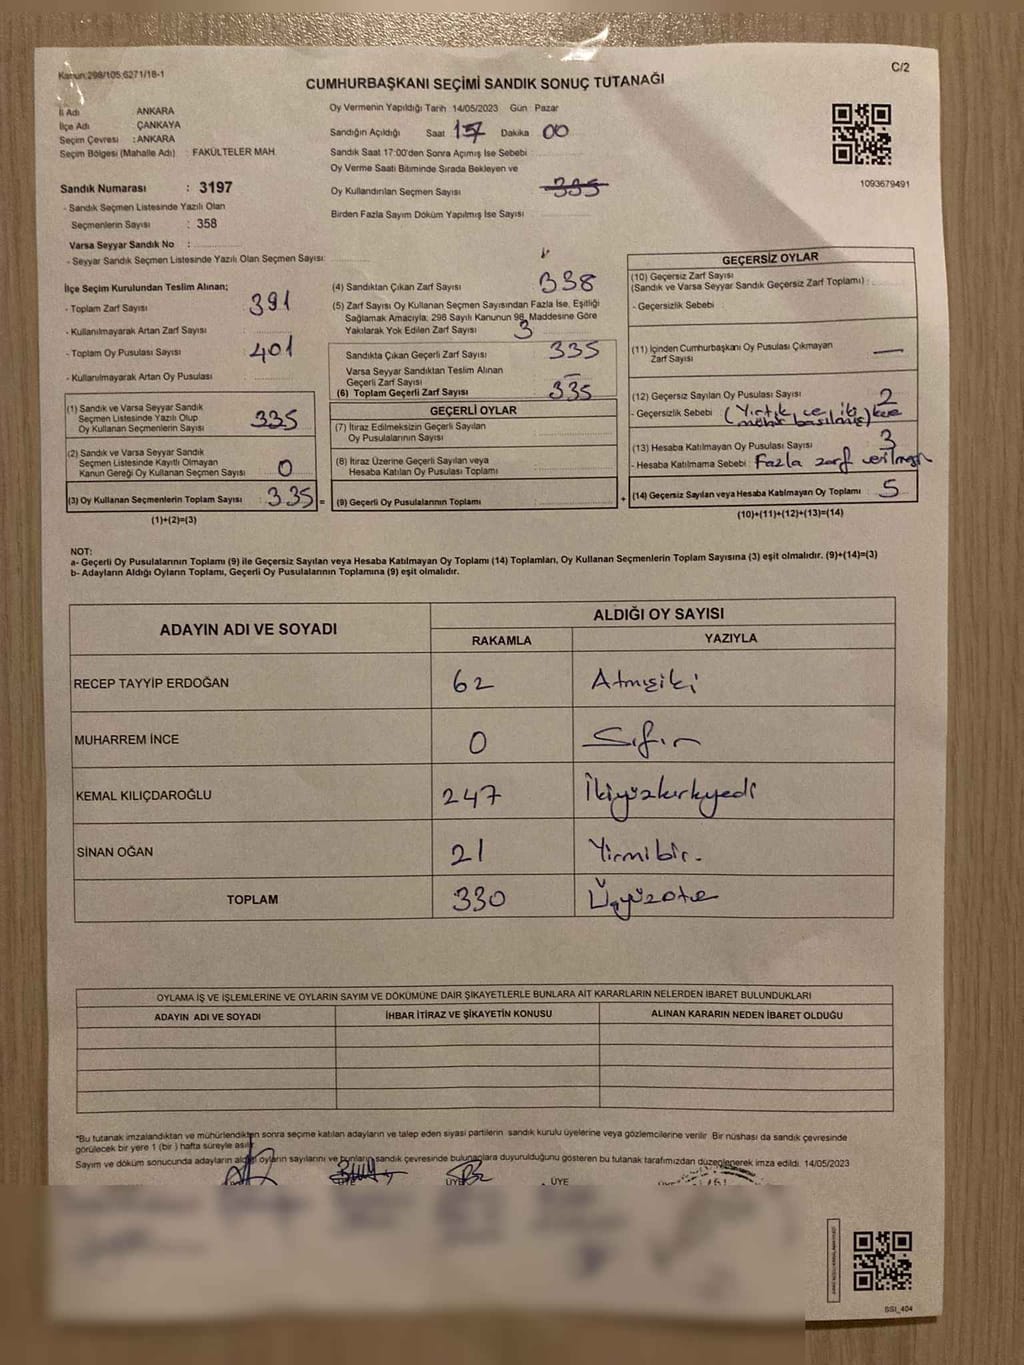 Kanun:298/105;6271/18-1
C/2
CUMHURBAŞKANI SEÇİMİ SANDIK SONUÇ TUTANAĞI
İl Adı ANKARA
İlçe Adı ÇANKAYA
Seçim Çevresi : ANKARA
Seçim Bölgesi (Mahalle Adı) : FAKÜLTELER MAH.
Sandık Numarası : 3197
- Sandık Seçmen Listesinde Yazılı Olan
Seçmenlerin Sayısı : 358
Varsa Seyyar Sandık No :
- Seyyar Sandık Seçmen Listesinde Yazılı Olan Seçmen Sayısı:
Oy Vermenin Yapıldığı Tarih 14/05/2023 Gün : Pazar
Sandığın Açıldığı Saat Dakika 00
Sandık Saat 17:00'den Sonra Açımış İse Sebebi
Oy Verme Saati Bitiminde Sırada Bekleyen ve
Oy Kullandırılan Seçmen Sayısı 335
Birden Fazla Sayım Döküm Yapılmış İse Sayısı
1093679491
İlçe Seçim Kurulundan Teslim Alınan;
- Toplam Zarf Sayısı 391
- Kullanılmayarak Artan Zarf Sayısı
- Toplam Oy Pusulası Sayısı 401
- Kullanılmayarak Artan Oy Pusulası
(1) Sandık ve Varsa Seyyar Sandık
Seçmen Listesinde Yazılı Olup
Oy Kullanan Seçmenlerin Sayısı 335
(2) Sandık ve Varsa Seyyar Sandık
Seçmen Listesinde Kayıtlı Olmayan
Kanun Gereği Oy Kullanan Seçmen Sayısı 0
(3) Oy Kullanan Seçmenlerin Toplam Sayısı : 335 =
(1)+(2)=(3)
(4) Sandıktan Çıkan Zarf Sayısı 338
(5) Zarf Sayısı Oy Kullanan Seçmen Sayısından Fazla İse, Eşitliği
Sağlamak Amacıyla; 298 Sayılı Kanunun 98. Maddesine Göre
Yakılarak Yok Edilen Zarf Sayısı 3
Sandıkta Çıkan Geçerli Zarf Sayısı 335
Varsa Seyyar Sandıktan Teslim Alınan
Geçerli Zarf Sayısı –
(6) Toplam Geçerli Zarf Sayısı 335
GEÇERLİ OYLAR
(7) İtiraz Edilmeksizin Geçerli Sayılan
Oy Pusulalarının Sayısı
(8) İtiraz Üzerine Geçerli Sayılan veya
Hesaba Katılan Oy Pusulası Toplamı
(9) Geçerli Oy Pusulalarının Toplamı +
GEÇERSİZ OYLAR
(10) Geçersiz Zarf Sayısı
(Sandık ve Varsa Seyyar Sandık Geçersiz Zarf Toplamı) :
- Geçersizlik Sebebi :
(11) İçinden Cumhurbaşkanı Oy Pusulası Çıkmayan
Zarf Sayısı —
(12) Geçersiz Sayılan Oy Pusulası Sayısı 2
- Geçersizlik Sebebi (Yırtık ve iki kere
mühür basılmış)
(13) Hesaba Katılmayan Oy Pusulası Sayısı 3
- Hesaba Katılmama Sebebi : Fazla zarf verilmesi
(14) Geçersiz Sayılan veya Hesaba Katılmayan Oy Toplamı 5
(10)+(11)+(12)+(13)=(14)
NOT:
a- Geçerli Oy Pusulalarının Toplamı (9) ile Geçersiz Sayılan veya Hesaba Katılmayan Oy Toplamı (14) Toplamları, Oy Kullanan Seçmenlerin Toplam Sayısına (3) eşit olmalıdır. (9)+(14)=(3)
b- Adayların Aldığı Oyların Toplamı, Geçerli Oy Pusulalarının Toplamına (9) eşit olmalıdır.
ADAYIN ADI VE SOYADI ALDIĞI OY SAYISI
RAKAMLA YAZIYLA
RECEP TAYYİP ERDOĞAN 62 Atmışiki
MUHARREM İNCE 0 Sıfır
KEMAL KILIÇDAROĞLU 247 İkiyüzkırkyedi
SİNAN OĞAN 21 Yirmibir.
TOPLAM 330 Üçyüzotuz
OYLAMA İŞ VE İŞLEMLERİNE VE OYLARIN SAYIM VE DÖKÜMÜNE DAİR ŞİKAYETLERLE BUNLARA AİT KARARLARIN NELERDEN İBARET BULUNDUKLARI
ADAYIN ADI VE SOYADI İHBAR İTİRAZ VE ŞİKAYETİN KONUSU ALINAN KARARIN NEDEN İBARET OLDUĞU
*Bu tutanak imzalandıktan ve mühürlendikten sonra seçime katılan adayların ve talep eden siyasi partilerin sandık kurulu üyelerine veya gözlemcilerine verilir Bir nüshası da sandık çevresinde
görülecek bir yere 1 (bir ) hafta süreyle asılır.
Sayım ve döküm sonucunda adayların aldığı oyların sayılarını ve bunların sandık çevresinde bulunanlara duyurulduğunu gösteren bu tutanak tarafımızdan düzenlenerek imza edildi. 14/05/2023
ÜYE ÜYE ÜYE
SSI_404